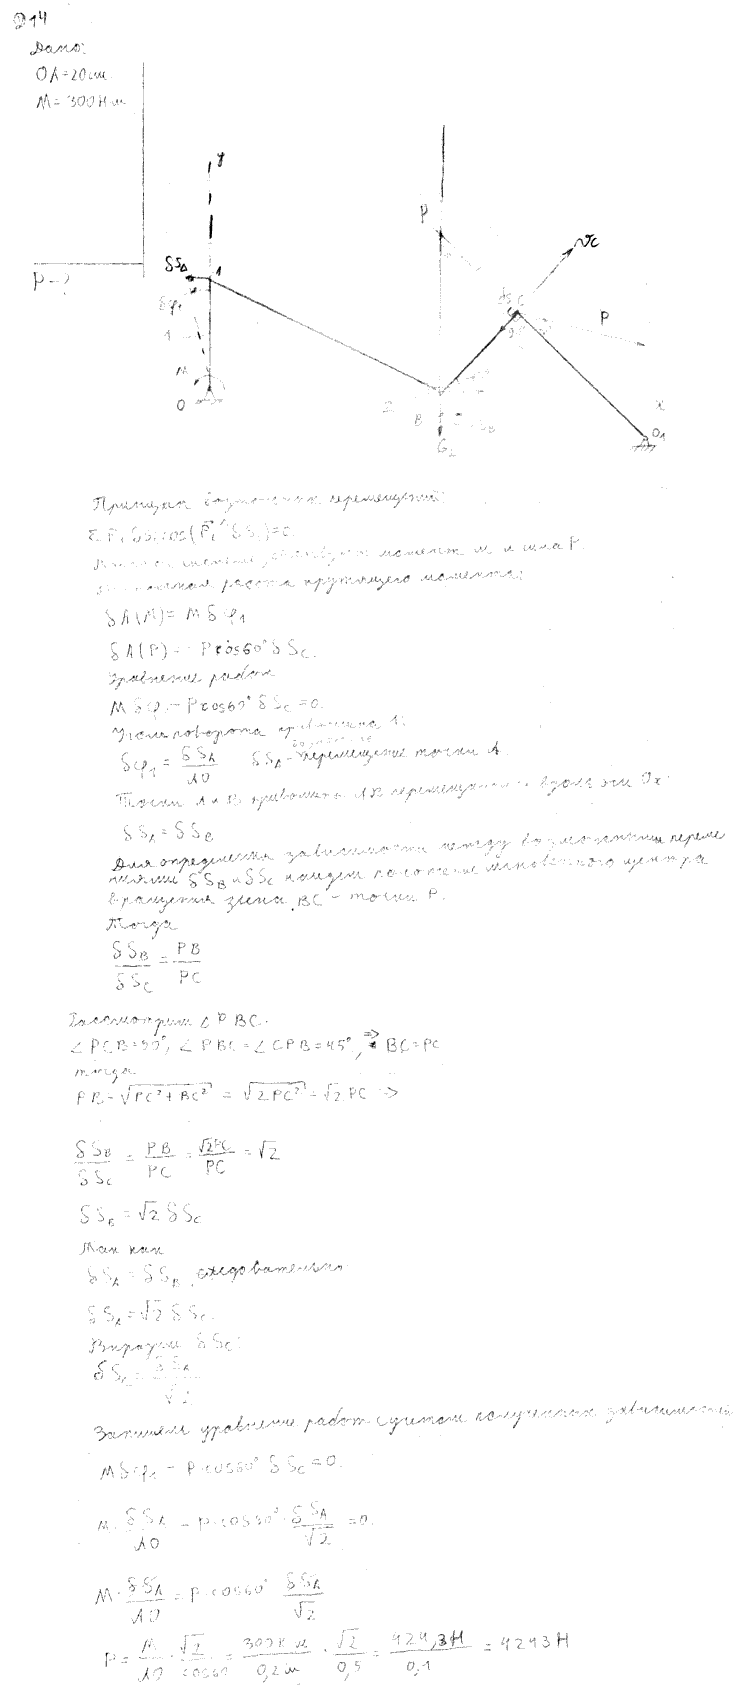 Д14
Дано:
OA=20см.
M=300Н·м
P-?
y
δS_A
A
δφ₁
1
M
O
P
v_C
δS_C
C
P
90°
2
B
δS_B
x
O₁
Принцип возможных перемещений:
δA(M)=Mδφ₁
δA(P)=-Pcos60°δS_C.
Уравнение работ
Mδφ₁-Pcos60°δS_C=0.
Угол поворота кривошипа 1:
δφ₁ = δS_A/AO δS_A - возможное перемещение точки A.
Точки A и B кривошипа AB перемещаются вдоль оси Ox:
δS_A=δS_B
Для определения зависимости между возможными переме
ниями δS_B и δS_C найдем положение мгновенного центра
вращения звена BC - точки P.
Тогда
δS_B/δS_C = PB/PC
Рассмотрим ∠PBC.
∠PCB=90°, ∠PBC=∠CPB=45°, ⇒ BC=PC
тогда
PB=√(PC²+BC²) = √(2PC²)=√2PC ⇒
δS_B/δS_C = PB/PC = √2PC/PC = √2
δS_B=√2 δS_C
Так как
δS_A=δS_B, следовательно
δS_A=√2 δS_C.
Выразим δS_C:
δS_C = δS_A/√2
Запишем уравнение работ с учетом полученных зависимостей
Mδφ₁ - P·cos60° δS_C=0.
M·δS_A/AO - P·cos60°·δS_A/√2 =0.
M·δS_A/AO = P·cos60° δS_A/√2
P = M/AO · √2/cos60 = 300Н·м/0,2м · √2/0,5 = 424,3Н/0,1 = 4243Н